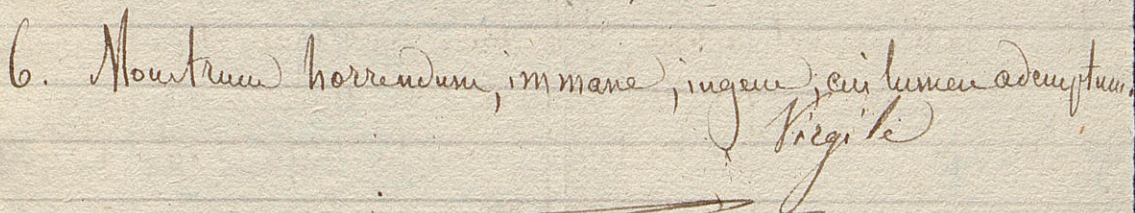 6. Monstrum horrendum, immane, ingens, cui lumen ademptum.
Virgile